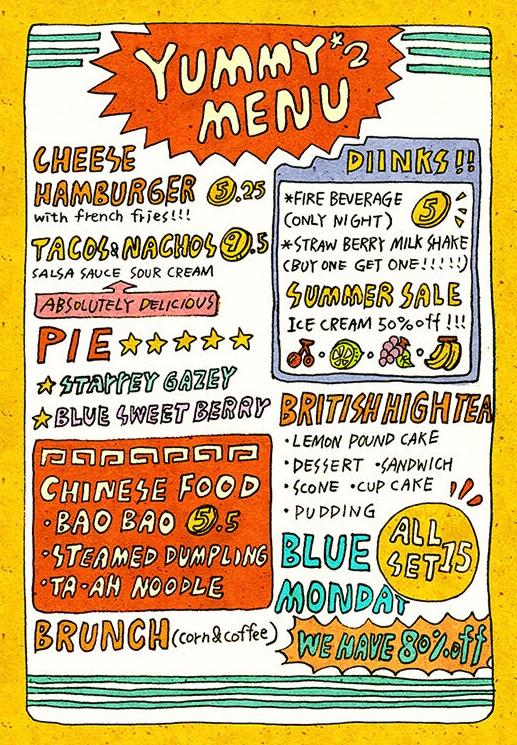 YUMMY*2
MENU
CHEESE
HAMBURGER 5.25
with french fries!!!
TACOS&NACHOS 9.5
SALSA SAUCE SOUR CREAM
ABSOLUTELY DELICIOUS
PIE ★★★★★
★STAPPEY GAZEY
★BLUE SWEET BERRY
CHINESE FOOD
·BAO BAO 5.5
·STEAMED DUMPLING
·TA-AH NOODLE
BRUNCH (corn&coffee)
DIINKS!!
*FIRE BEVERAGE 5
(ONLY NIGHT)
*STRAW BERRY MILK SHAKE
(BUY ONE GET ONE!!!!!)
SUMMER SALE
ICE CREAM 50% off !!!
BRITISH HIGH TEA
·LEMON POUND CAKE
·DESSERT ·SANDWICH
·SCONE ·CUP CAKE
·PUDDING
ALL
SET 15
BLUE
MONDAY
WE HAVE 80% off